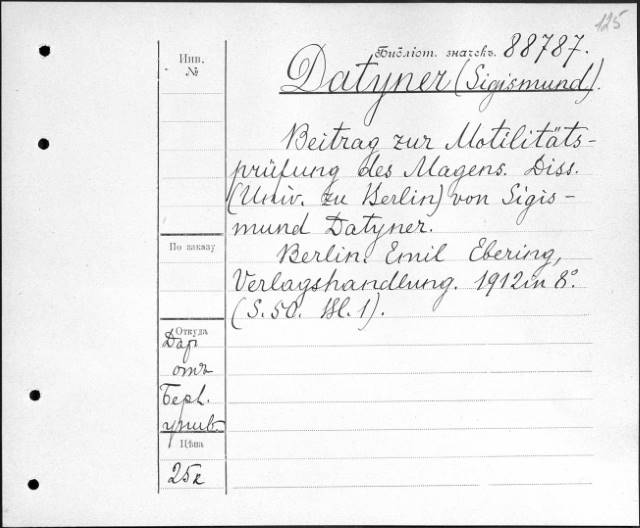 125
Библіот. значекъ. 88787.
Инв.
№
Datyner (Sigismund).
Beitrag zur Motilitäts-
prüfung des Magens. Diss.
(Univ. zu Berlin) von Sigis-
mund Datyner.
По заказу
Berlin. Emil Ebering,
Verlagshandlung. 1912 in 8°.
(S. 50. Bl. 1).
Откуда
Дар
отъ
Берл.
унив.
Цѣна
25к